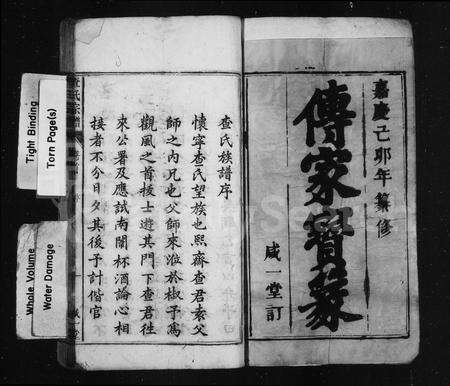 嘉慶己卯年纂修
傳家寶彖
咸一堂訂
查氏族譜序
懷寧查氏望族也熙齋查君袁父
師之內兄也父師來涖於椒予爲
觀風之首拔士遊其門下查君徃
來公署及應試南闈杯酒論心相
接者不分日夕其後予計偕官
查氏宗譜
Tight Binding
Torn Page(s)
Whole Volume
Water Damage